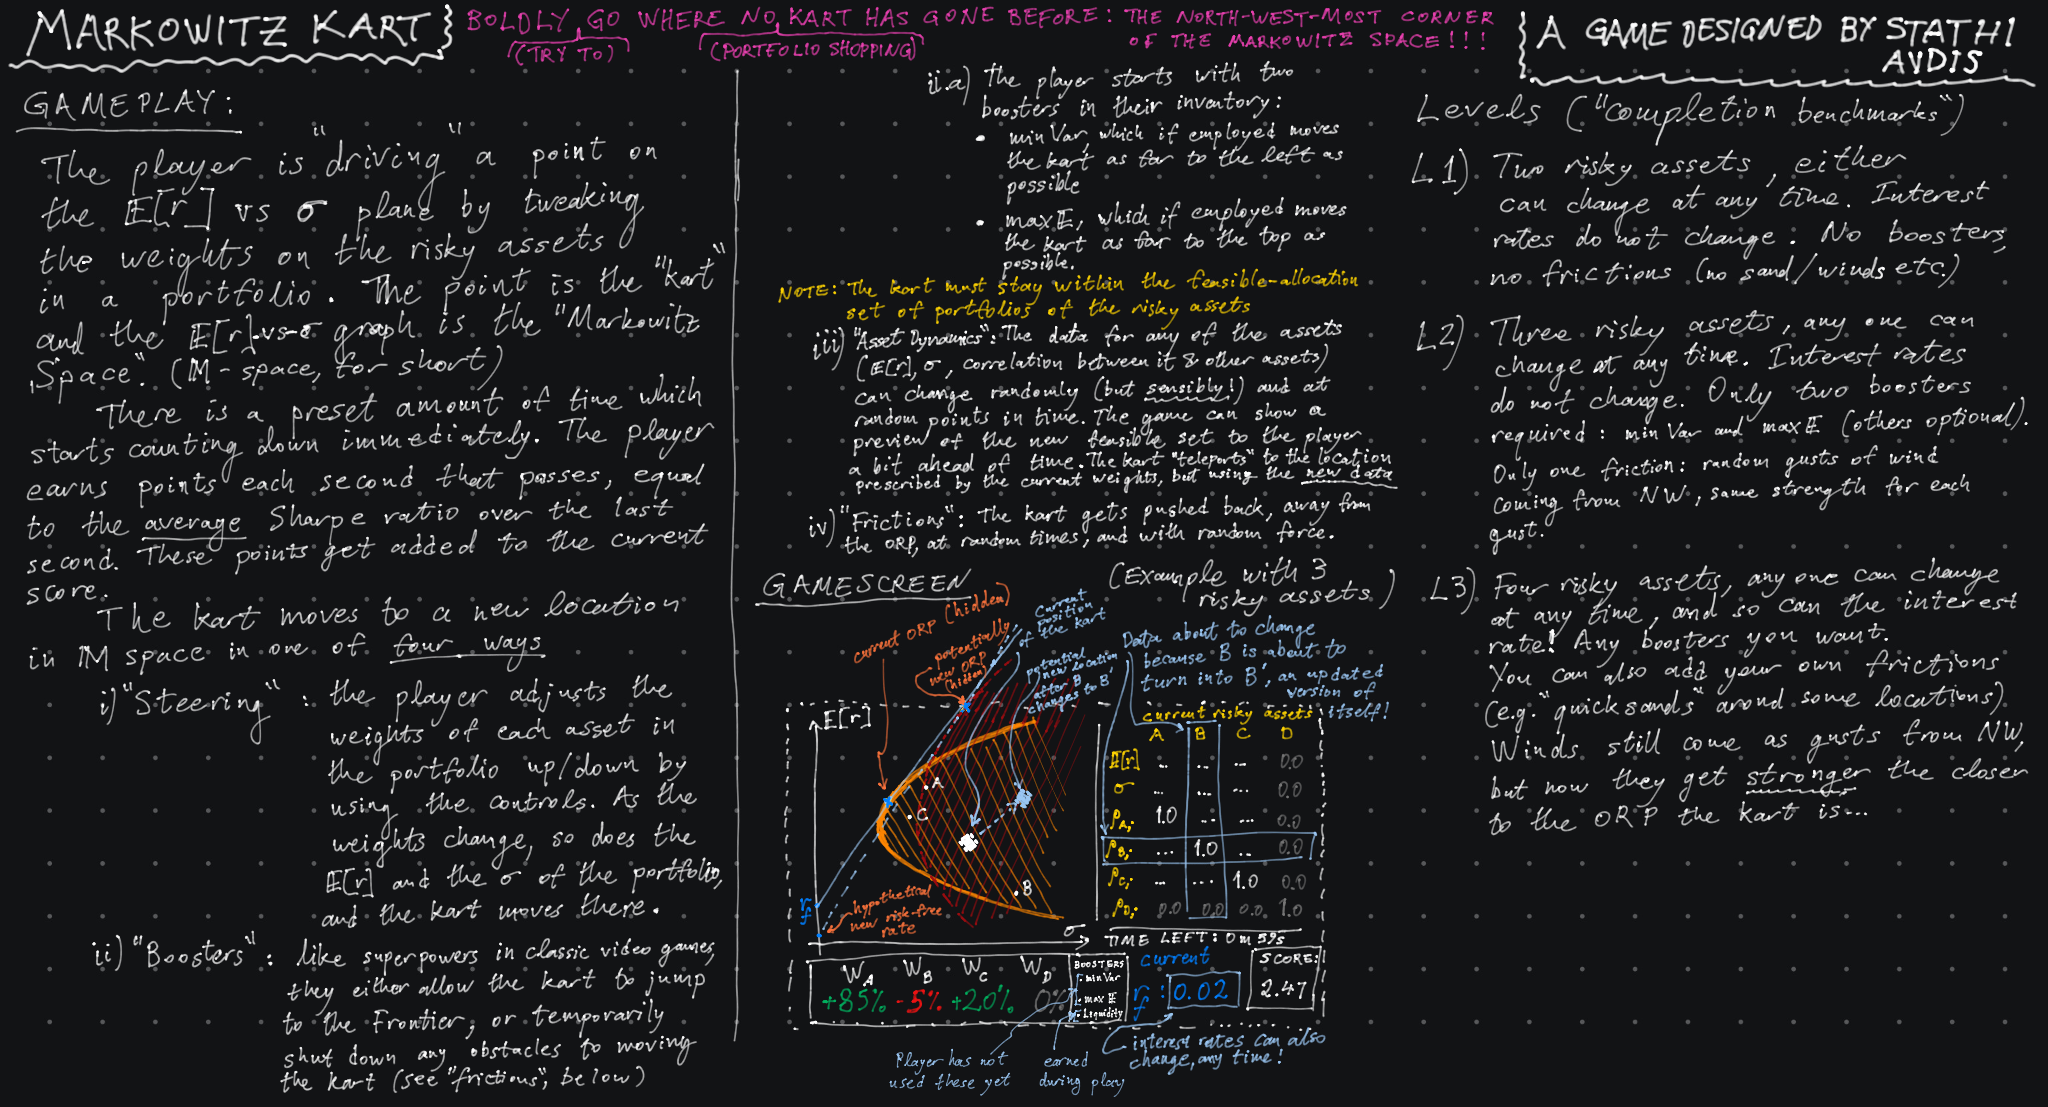 MARKOWITZ KART
BOLDLY GO WHERE NO KART HAS GONE BEFORE: THE NORTH-WEST-MOST CORNER
(TRY TO) (PORTFOLIO SHOPPING) OF THE MARKOWITZ SPACE!!!
A GAME DESIGNED BY STATHI
AVDIS
GAMEPLAY:
The player is "driving" a point on
the E[r] vs σ plane by tweaking
the weights on the risky assets
in a portfolio. The point is the "kart"
and the E[r]-vs-σ graph is the "Markowitz
Space". (M-space, for short)
There is a preset amount of time which
starts counting down immediately. The player
earns points each second that passes, equal
to the average Sharpe ratio over the last
second. These points get added to the current
score.
The kart moves to a new location
in M space in one of four ways
i) "Steering": the player adjusts the
weights of each asset in
the portfolio up/down by
using the controls. As the
weights change, so does the
E[r] and the σ of the portfolio,
and the kart moves there.
ii) "Boosters": like superpowers in classic video games,
they either allow the kart to jump
to the Frontier, or temporarily
shut down any obstacles to moving
the kart (see "frictions", below)
ii.a) The player starts with two
boosters in their inventory:
• minVar, which if employed moves
the kart as far to the left as
possible
• maxE, which if employed moves
the kart as far to the top as
possible.
NOTE: The kart must stay within the feasible-allocation
set of portfolios of the risky assets
iii) "Asset Dynamics": The data for any of the assets
(E[r], σ, correlation between it & other assets)
can change randomly (but sensibly!) and at
random points in time. The game can show a
preview of the new feasible set to the player
a bit ahead of time. The kart "teleports" to the location
prescribed by the current weights, but using the new data
iv) "Frictions": The kart gets pushed back, away from
the ORP, at random times, and with random force.
GAMESCREEN
(Example with 3
risky assets)
current ORP (hidden)
potentially
new ORP
(hidden)
current
position
of the kart
potential
new location
after B
changes to B'
Data about to change
because B is about to
turn into B', an updated
version of
itself!
E[r]
A
C
B
r_f
hypothetical
new risk-free
rate
σ
current risky assets
A B C D
E[r] ... ... ... 0.0
σ ... ... ... 0.0
ρA,i 1.0 ... ... 0.0
ρB,i ... 1.0 ... 0.0
ρC,i ... ... 1.0 0.0
ρD,i 0.0 0.0 0.0 1.0
TIME LEFT: 0m 59s
W_A W_B W_C W_D
+85% -5% +20% 0%
BOOSTERS
• minVar
• maxE
• Liquidity
current
r_f: 0.02
SCORE:
2.47
Player has not
used these yet
earned
during play
interest rates can also
change, any time!
Levels ("completion benchmarks")
L1) Two risky assets, either
can change at any time. Interest
rates do not change. No boosters,
no frictions (no sand/winds etc.)
L2) Three risky assets, any one can
change at any time. Interest rates
do not change. Only two boosters
required: minVar and maxE (others optional).
Only one friction: random gusts of wind
coming from NW, same strength for each
gust.
L3) Four risky assets, any one can change
at any time, and so can the interest
rate! Any boosters you want.
You can also add your own frictions
(e.g. "quicksands" around some locations)
Winds still come as gusts from NW,
but now they get stronger the closer
to the ORP the kart is...